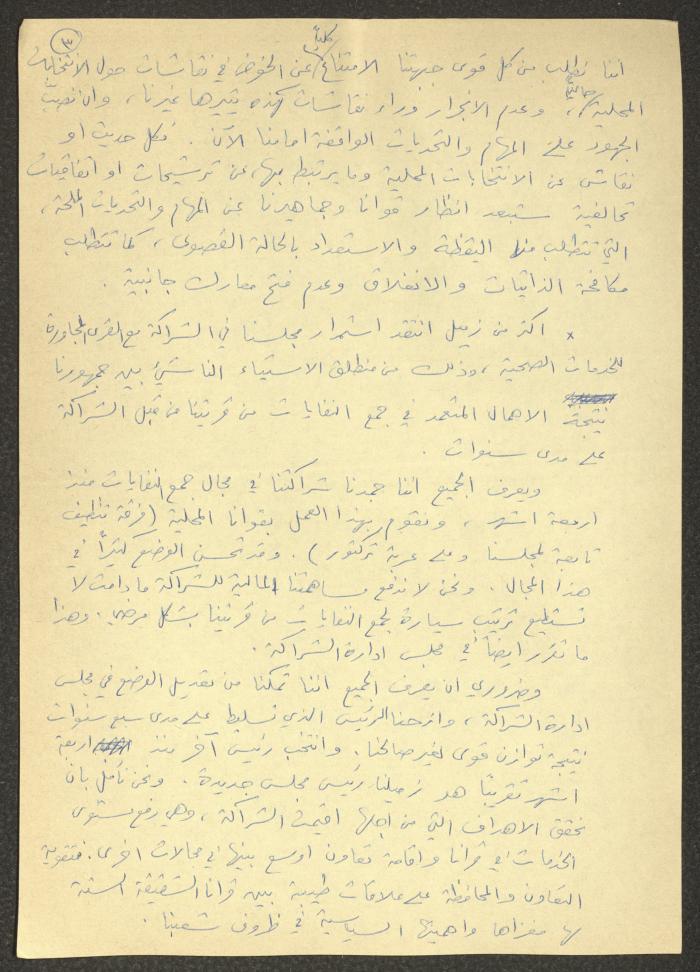 ٣
اننا نطلب من كل قوى جبهتنا الامتناع كلياً عن الخوض في نقاشات حول الانتخابات
المحلية حالياً، وعدم الانجرار وراء نقاشات كهذه يثيرها غيرنا، وان نصبّ
الجهود على المهام والتحديات الواقفة امامنا الآن. فكل حديث او
نقاش عن الانتخابات المحلية وما يرتبط بها، عن ترشيحات او اتفاقيات
تحالفية ستبعد انظار قوانا وجماهيرنا عن المهام والتحديات الملحة،
التي تتطلب منا اليقظة والاستعداد بالحالة القصوى، كما تتطلب
مكافحة الذاتيات والانغلاق وعدم فتح معارك جانبية.
× اكثر من زميل انتقد استمرار مجلسنا في الشراكة مع القرى المجاورة
للخدمات الصحية، وذلك من منطلق الاستياء الناشئ بين جمهورنا
نتيجة الاهمال المتعمد في جمع النفايات من قريتنا من قبل الشراكة
على مدى سنوات.
ويعرف الجميع اننا جمدنا شراكتنا في مجال جمع النفايات منذ
اربعة اشهر، ونقوم بهذا العمل بقوانا المحلية (فرقة تنظيف
تابعة لمجلسنا وعلى عربة تركتور). وقد تحسن الوضع كثيراً في
هذا المجال. ونحن لا ندفع مساهمتنا المالية للشراكة ما دامت لا
تستطيع ترتيب سيارة لجمع النفايات من قريتنا بشكل مرضي. وهذا
ما تقرر ايضاً في مجلس ادارة الشراكة.
وضروري ان يعرف الجميع اننا تمكنا من تعديل الوضع في مجلس
ادارة الشراكة، وازحنا الرئيس الذي تسلط على مدى سبع سنوات
نتيجة توازن قوى لغير صالحنا. وانتخب رئيس آخر منذ اربعة
اشهر تقريباً هو زميلنا رئيس مجلس جديدة. ونحن نأمل بان
نحقق الاهداف التي من اجلها اقيمت الشراكة، وهي رفع مستوى
الخدمات في قرانا واقامة تعاون اوسع بينها في مجالات اخرى. فتقوية
التعاون والمحافظة على علاقات طيبة بين قرانا الشقيقة الستة
لها مغزاها واهميتها السياسية في ظروف شعبنا.